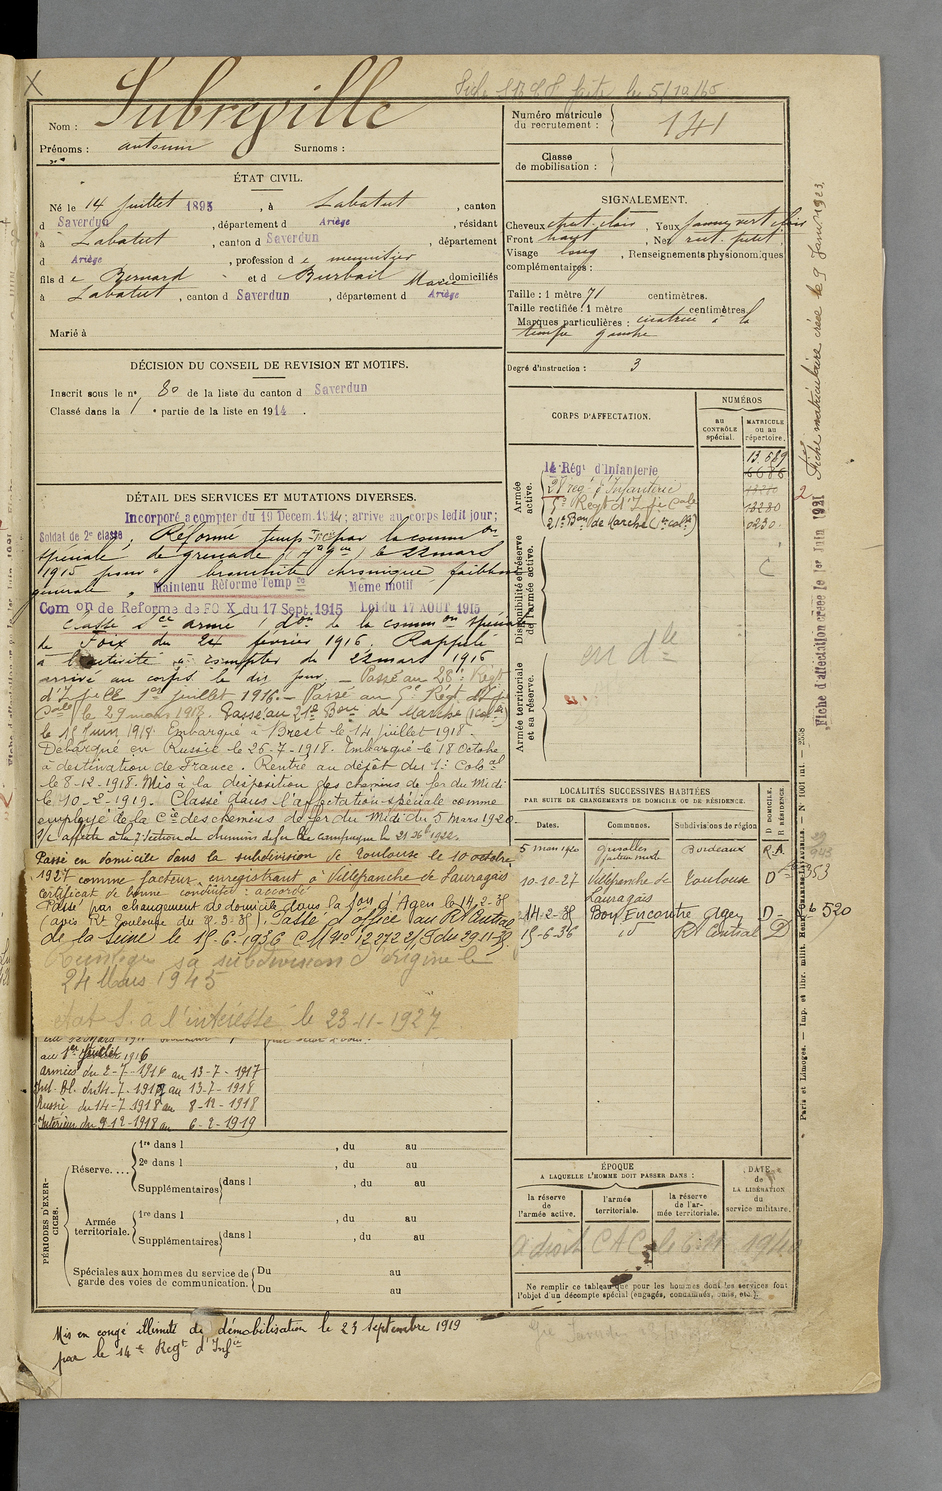 Fiche S.M. faite le 5/10/65
Subreville
Nom :
Prénoms : antonin Surnoms :
Numéro matricule du recrutement : 141
Classe de mobilisation :
ÉTAT CIVIL.
Né le 14 juillet 1895, à Labatut, canton
d Saverdun, département d Ariège, résidant
à Labatut, canton d Saverdun, département
d Ariège, profession de meunier
fils de Bernard et de Burbail Marie domiciliés
à Labatut, canton d Saverdun, département d Ariège
Marié à
SIGNALEMENT.
Cheveux chat. clair, Yeux jaune vert clair
Front haut, Nez rect. petit.
Visage long, Renseignements physionomiques
complémentaires :
Taille : 1 mètre 71 centimètres.
Taille rectifiée : 1 mètre centimètres
Marques particulières : cicatrice à la
tempe gauche
Degré d'instruction : 3
DÉCISION DU CONSEIL DE REVISION ET MOTIFS.
Inscrit sous le n° 80 de la liste du canton d Saverdun
Classé dans la 1e partie de la liste en 1914.
CORPS D'AFFECTATION.
NUMÉROS
au CONTRÔLE spécial.
MATRICULE ou au répertoire.
Armée active.
14 Régt d'Infanterie 13589
28 reg. d'Infanterie 6686
5e Regt d'Infie Cale 13280
21e Bon de Marche (ie colle) 0230
Disponibilité et réserve de l'armée active.
Armée territoriale et sa réserve.
en dle
DÉTAIL DES SERVICES ET MUTATIONS DIVERSES.
Incorporé a compter du 19 Decem. 1914; arrive au corps ledit jour;
Soldat de 2e classe; Réformé temp. par la common
spéciale de grenade le 22 mars
1915 pour " bronchite chronique, faiblesse
générale " Maintenu Réforme Temp re Même motif
Comon de Reforme de FOIX du 17 Sept. 1915 Loi du 17 AOUT 1915
Classé sce armé, don de la common spéciale
de Foix du 24 février 1916. Rappelé
à l'activité à compter du 22 mars 1916
arrivé au corps le dit jour. — Passé au 28e Régt
d'Infie le 1er juillet 1916. — Passé au 5e Régt d'Infie
Cale le 29 mars 1918. Passé au 21e Bon de Marche (ie colle)
le 15 Juin 1918. Embarqué à Brest le 14 juillet 1918 -
Débarqué en Russie le 26-7-1918. Embarqué le 18 Octobre
à destination de France. Rentré au dépôt du 1e Colal
le 8-12-1918. Mis à la disposition des chemins de fer du Midi
le 10-2-1919. Classé dans l'affectation spéciale comme
employé de la Cie des chemins de fer du Midi du 5 mars 1920.
affecté à la 7e Section de chemins de fer de campagne le 21 1922.
Passé en domicile dans la subdivision de Toulouse le 10 octobre
1927 comme facteur enregistrant à Villefranche de Lauragais
Certificat de bonne conduite : accordé
Passé par changement de domicile dans la subdon d'Agen le 14-2-35
(avis Rt Toulouse du 9-3-35). Passé d'office au Rt Central
de la Seine le 15-6-1936 C.M. n° 12272 2/S du 29.11.35.
Réintégré sa subdivision d'origine le
24 Mars 1945
état S. à l'intéressé le 23-11-1927
au 1er Juillet 1916
armées du 2-7-1916 au 13-7-1917
Int. Bl. du 14-7-1917 au 13-7-1918
Russie du 14-7-1918 au 8-12-1918
Intérieur du 9-12-1918 au 6-2-1919
LOCALITÉS SUCCESSIVES HABITÉES
PAR SUITE DE CHANGEMENTS DE DOMICILE OU DE RÉSIDENCE.
Dates. Communes. Subdivisions de région
D DOMICILE. R RÉSIDENCE.
5 mars 1920 Grisolles facteur mixte Bordeaux R.A.
10-10-27 Villefranche de Lauragais Toulouse D
14-2-35 Bon Encontre Agen D
15-6-36 id Rt Central D
PÉRIODES D'EXERCICES.
Réserve....
1re dans l , du au
2e dans l , du au
Supplémentaires dans l , du au
Armée territoriale.
1re dans l , du au
Supplémentaires dans l , du au
Spéciales aux hommes du service de
garde des voies de communication.
Du au
Du au
ÉPOQUE
A LAQUELLE L'HOMME DOIT PASSER DANS :
la réserve de l'armée active.
l'armée territoriale.
la réserve de l'armée territoriale.
DATE de LA LIBÉRATION du service militaire.
a droit CAC le 6.11 1940
Ne remplir ce tableau que pour les hommes dont les services font
l'objet d'un décompte spécial (engagés, condamnés, omis, etc.).
Mis en congé illimité de démobilisation le 23 Septembre 1919
par le 14e Regt d'Infie
Fiche matriculaire créée le 9 Janv 1923.
Fiche d'affectation créée le 1er Juin 1921
353
520
Paris et Limoges. — Imp. et libr. milit. Henri CHARLES-LAVAUZELLE. — N° 1001 int. — 2558